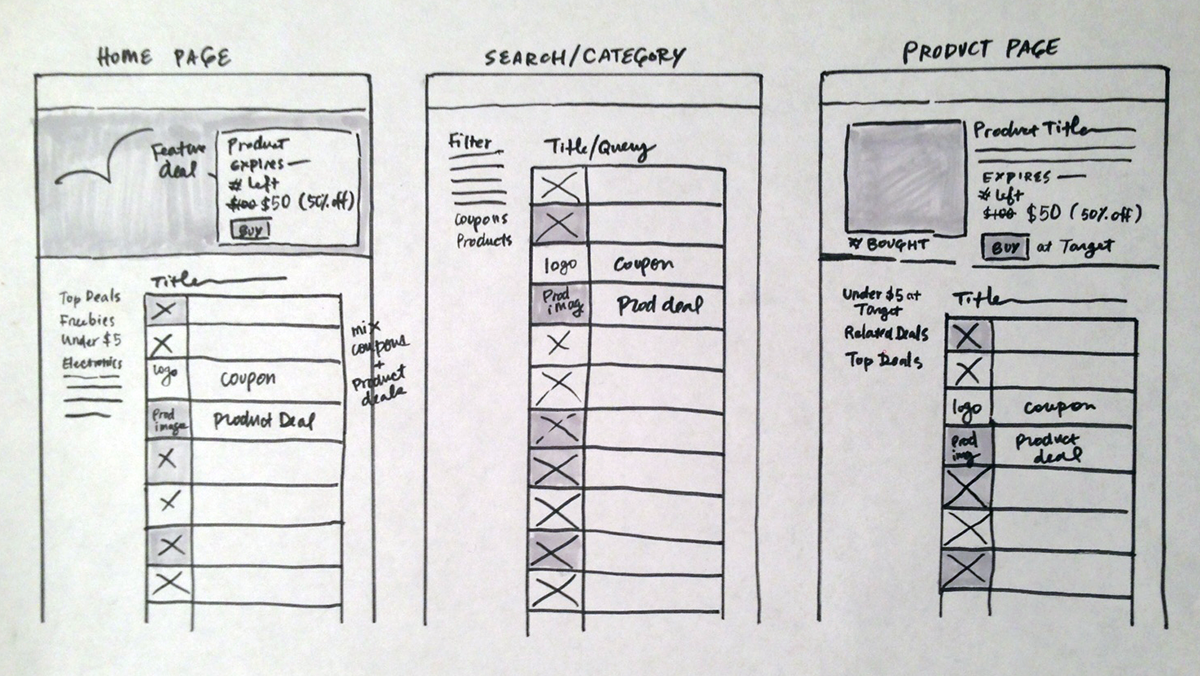 HOME PAGE
Feature
deal
Product
EXPIRES
# left
$100 $50 (50% off)
BUY
Title
Top Deals
Freebies
Under $5
Electronics
logo
coupon
Prod
image
Product Deal
mix
coupons
+
Product
deals
SEARCH/CATEGORY
Filter
Coupons
Products
Title/Query
logo
coupon
Prod
imag
Prod deal
PRODUCT PAGE
Product Title
EXPIRES
# left
$100 $50 (50% off)
BUY at Target
# BOUGHT
Under $5 at
Target
Related Deals
Top Deals
Title
logo
coupon
Prod
img
Product
deal